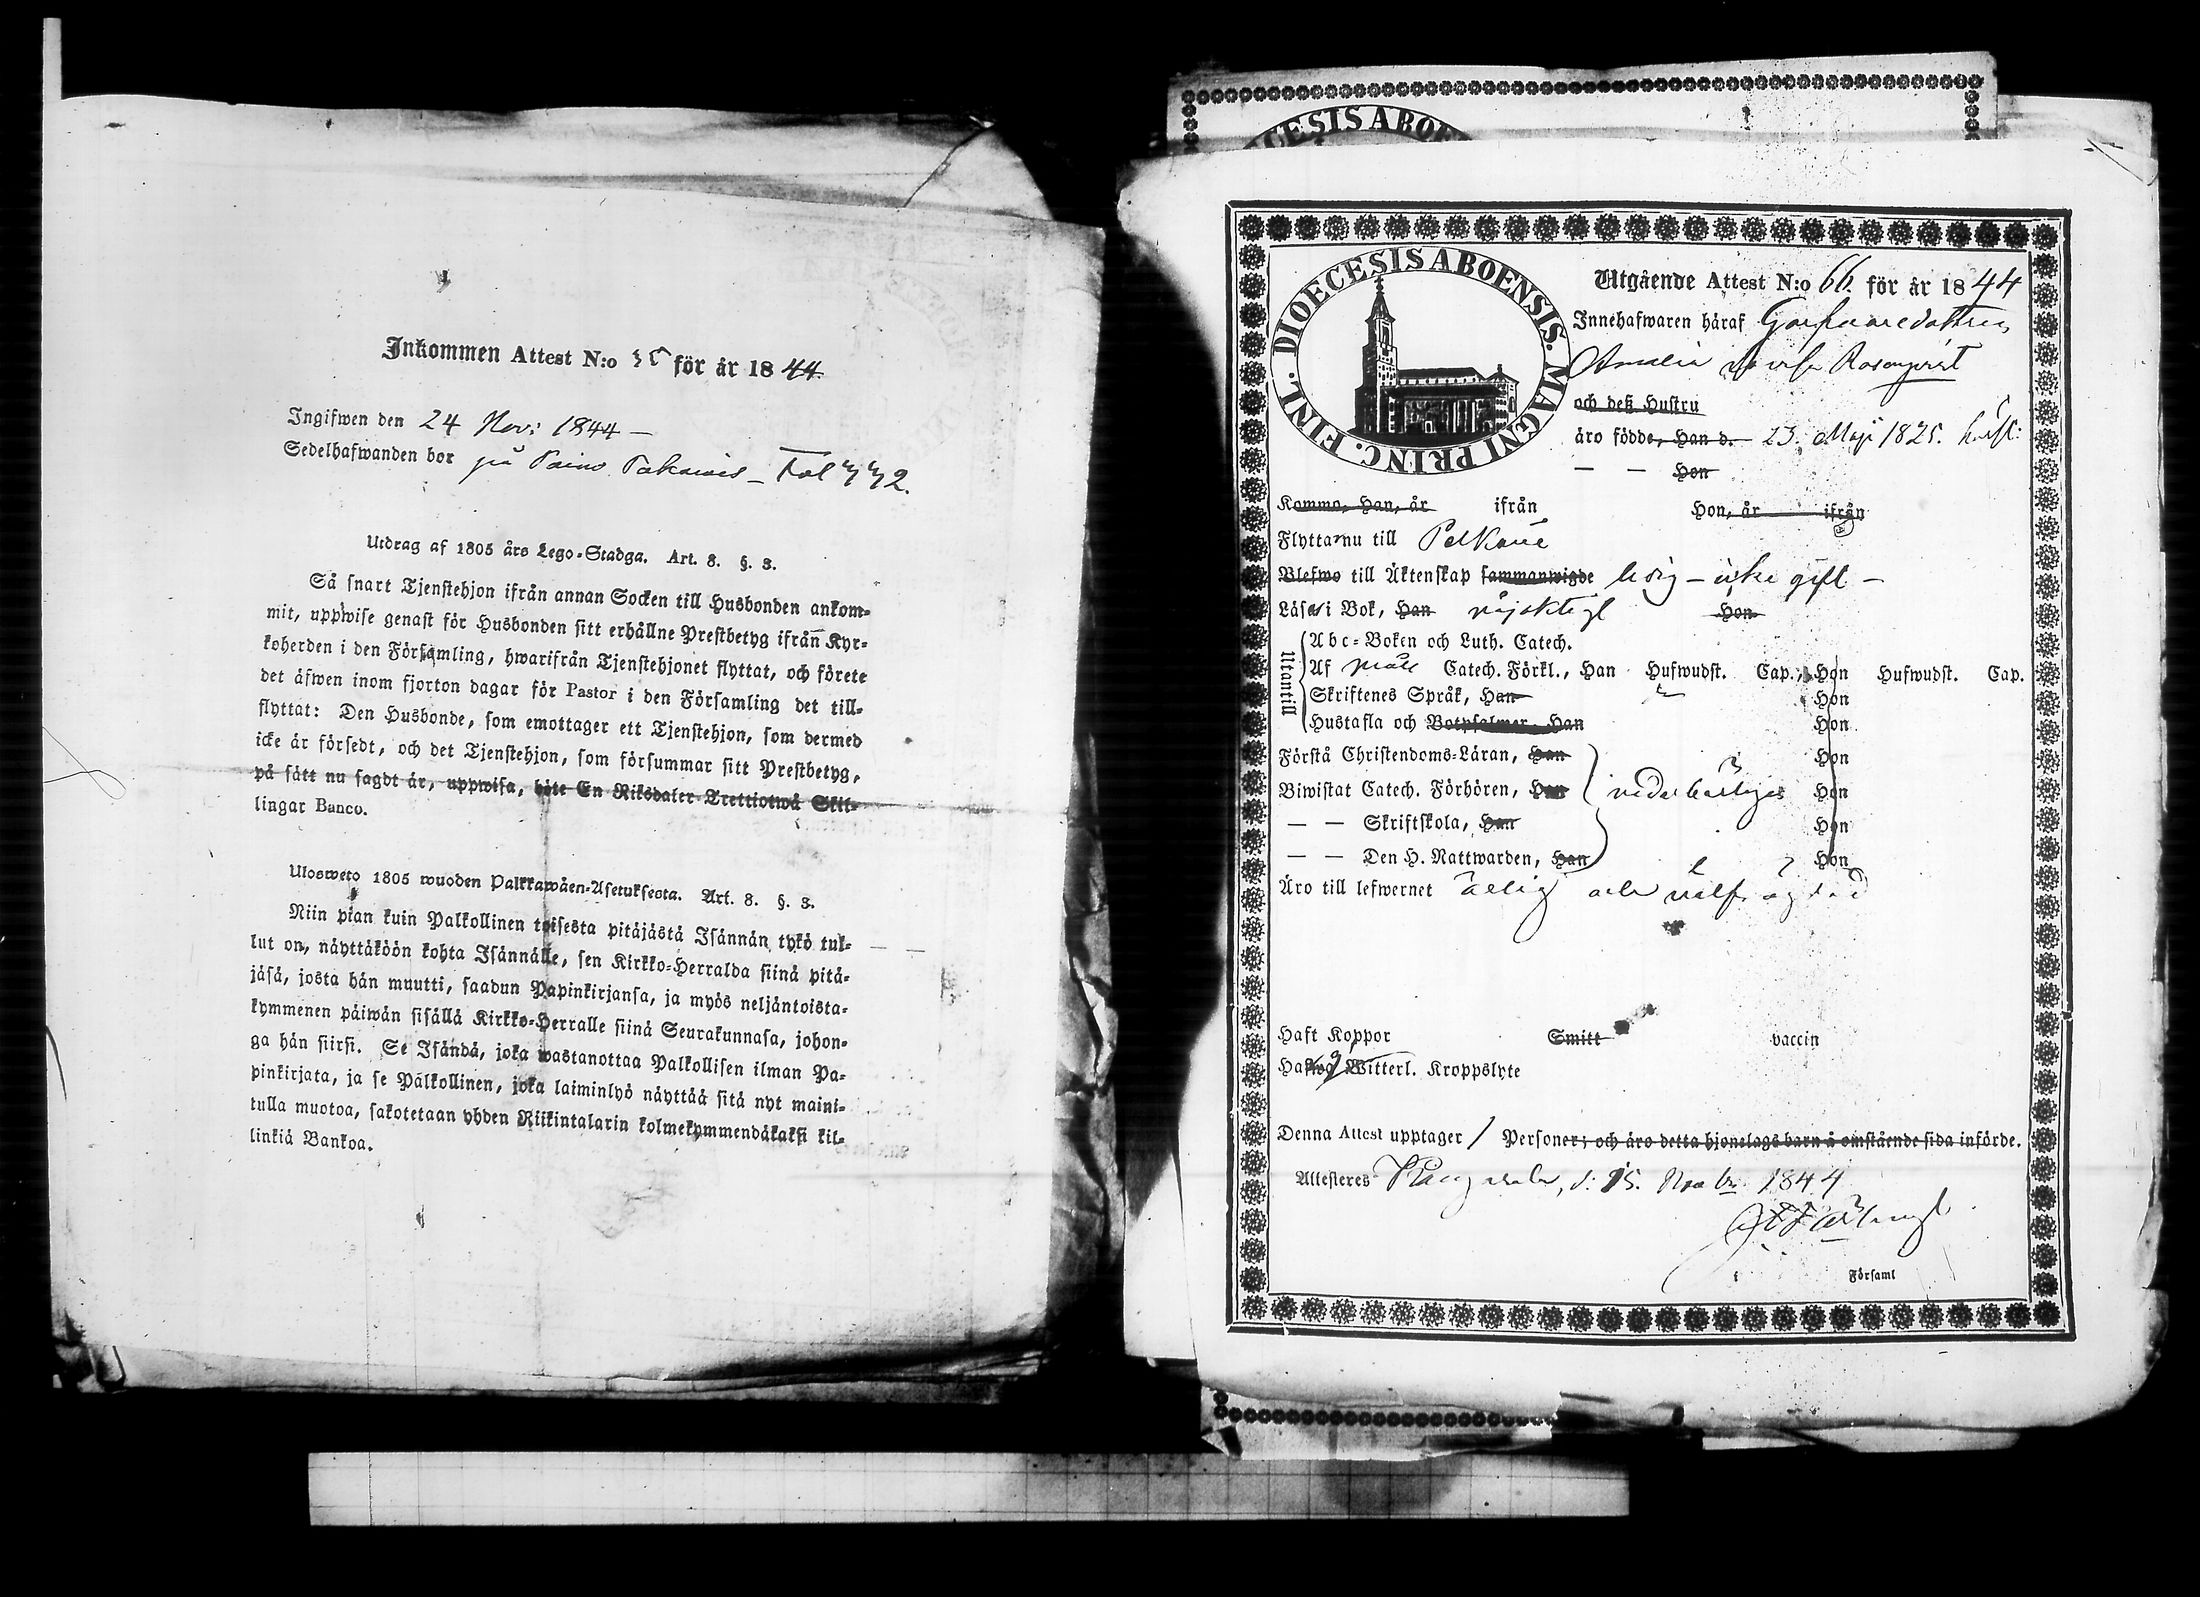 Inkommen Attest N:o för år 1844.
Ingifwen den 24 Nov: 1844 —
Sedelhafwanden bor på
Utdrag af 1805 års Lego-Stadga. Art. 8. §. 3.
Så snart Tjenstehjon ifrån annan Socken till Husbonden ankom-
mit, uppwise genast för Husbonden sitt erhållne Prestbetyg ifrån Kyr-
koherden i den Församling, hwarifrån Tjenstehjonet flyttat, och förete
det äfwen inom fjorton dagar för Pastor i den Församling det till-
flyttat: Den Husbonde, som emottager ett Tjenstehjon, som dermed
icke är försedt, och det Tjenstehjon, som försummar sitt Prestbetyg,
på sätt nu sagdt är, uppwisa, böte En Riksdaler Trettiotwå Skil-
lingar Banco.
Ulosweto 1805 wuoden Palkkawäen-Asetuksesta. Art. 8. §. 3.
Niin pian kuin Palkollinen toisesta pitäjästä Isännän tykö tul-
lut on, näyttäköön kohta Isännälle, sen Kirkko-Herralda siinä pitä-
jäsä, josta hän muutti, saadun Papinkirjansa, ja myös neljäntoista-
kymmenen päiwän sisällä Kirkko-Herralle siinä Seurakunnasa, johon-
ga hän siirsi. Se Isändä, joka wastanottaa Palkollisen ilman Pa-
pinkirjata, ja se Palkollinen, joka laiminlyö näyttää sitä nyt maini-
tulla muotoa, sakotetaan yhden Riikintalarin kolmekymmendäkaksi kil-
linkiä Bankoa.
DIOECESIS ABOE
DIOECESIS ABOENSIS. MAGNI PRINC. FINL.
Utgående Attest N:o 66. för år 1844
Innehafwaren häraf
Amalia Rosenqvist
och deß Hustru
äro födde, Han d. 23. Maji 1825.
— — Hon
Komme, Han, år ifrån Hon, år ifrån
Flytta nu till Pelkäne
Blefwo till Äktenskap sammanwigde ledig — icke gift —
Läsa i Bok, Han nöjaktigt Hon
Utantill
Abc-Boken och Luth. Catech.
Af Catech. Förkl., Han Hufwudst. Cap., Hon Hufwudst. Cap.
Skriftenes Språk, Han Hon
Hustafla och Botpsalmer, Han Hon
Förstå Christendoms-Läran, Han Hon
Biwistat Catech. Förhören, Han vederbörligen Hon
— — Skriftskola, Han Hon
— — Den H. Nattwarden, Han Hon
Äro till lefwernet ärlig och välfrägdad
Haft Koppor Smitt vaccin
Hafwa Witterl. Kroppslyte
Denna Attest upptager 1 Personer; och äro detta hjonelags barn å omstående sida införde.
Attesteres Kangasala, d. 15. Novbr 1844
Församl